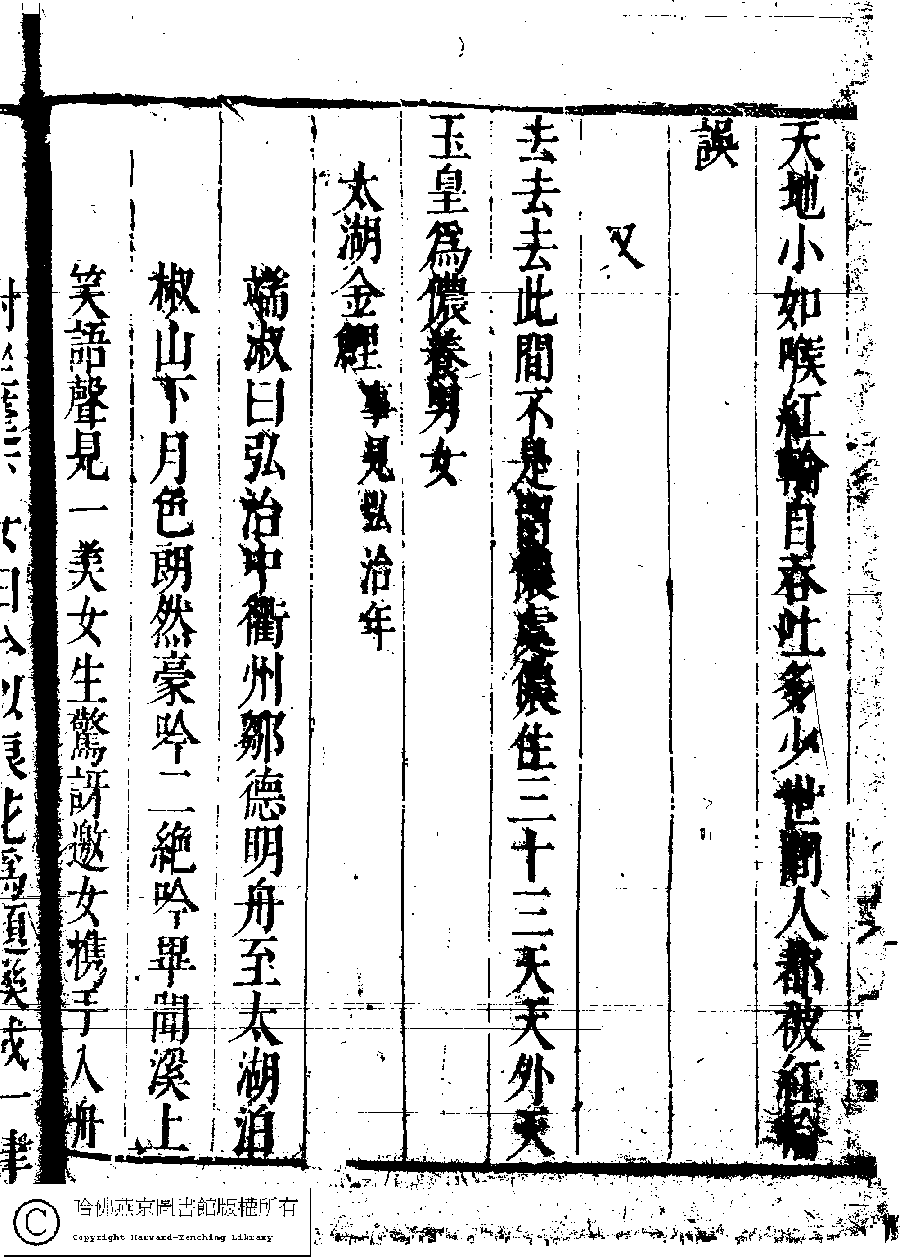 天地小如喉紅輪自吞吐多少世間人都被紅輪
誤
又
去去去此間不是留儂處儂住三十三天天外天
玉皇爲儂養男女
太湖金鯉 事見弘治年
端淑曰弘治中衢州鄒德明舟至太湖泊
椒山下月色朗然豪吟二絶吟畢聞溪上
笑語聲見一美女生驚訝邀女携手入舟
哈佛燕京圖書館版權所有
Copyright Harvard-Yenching Library